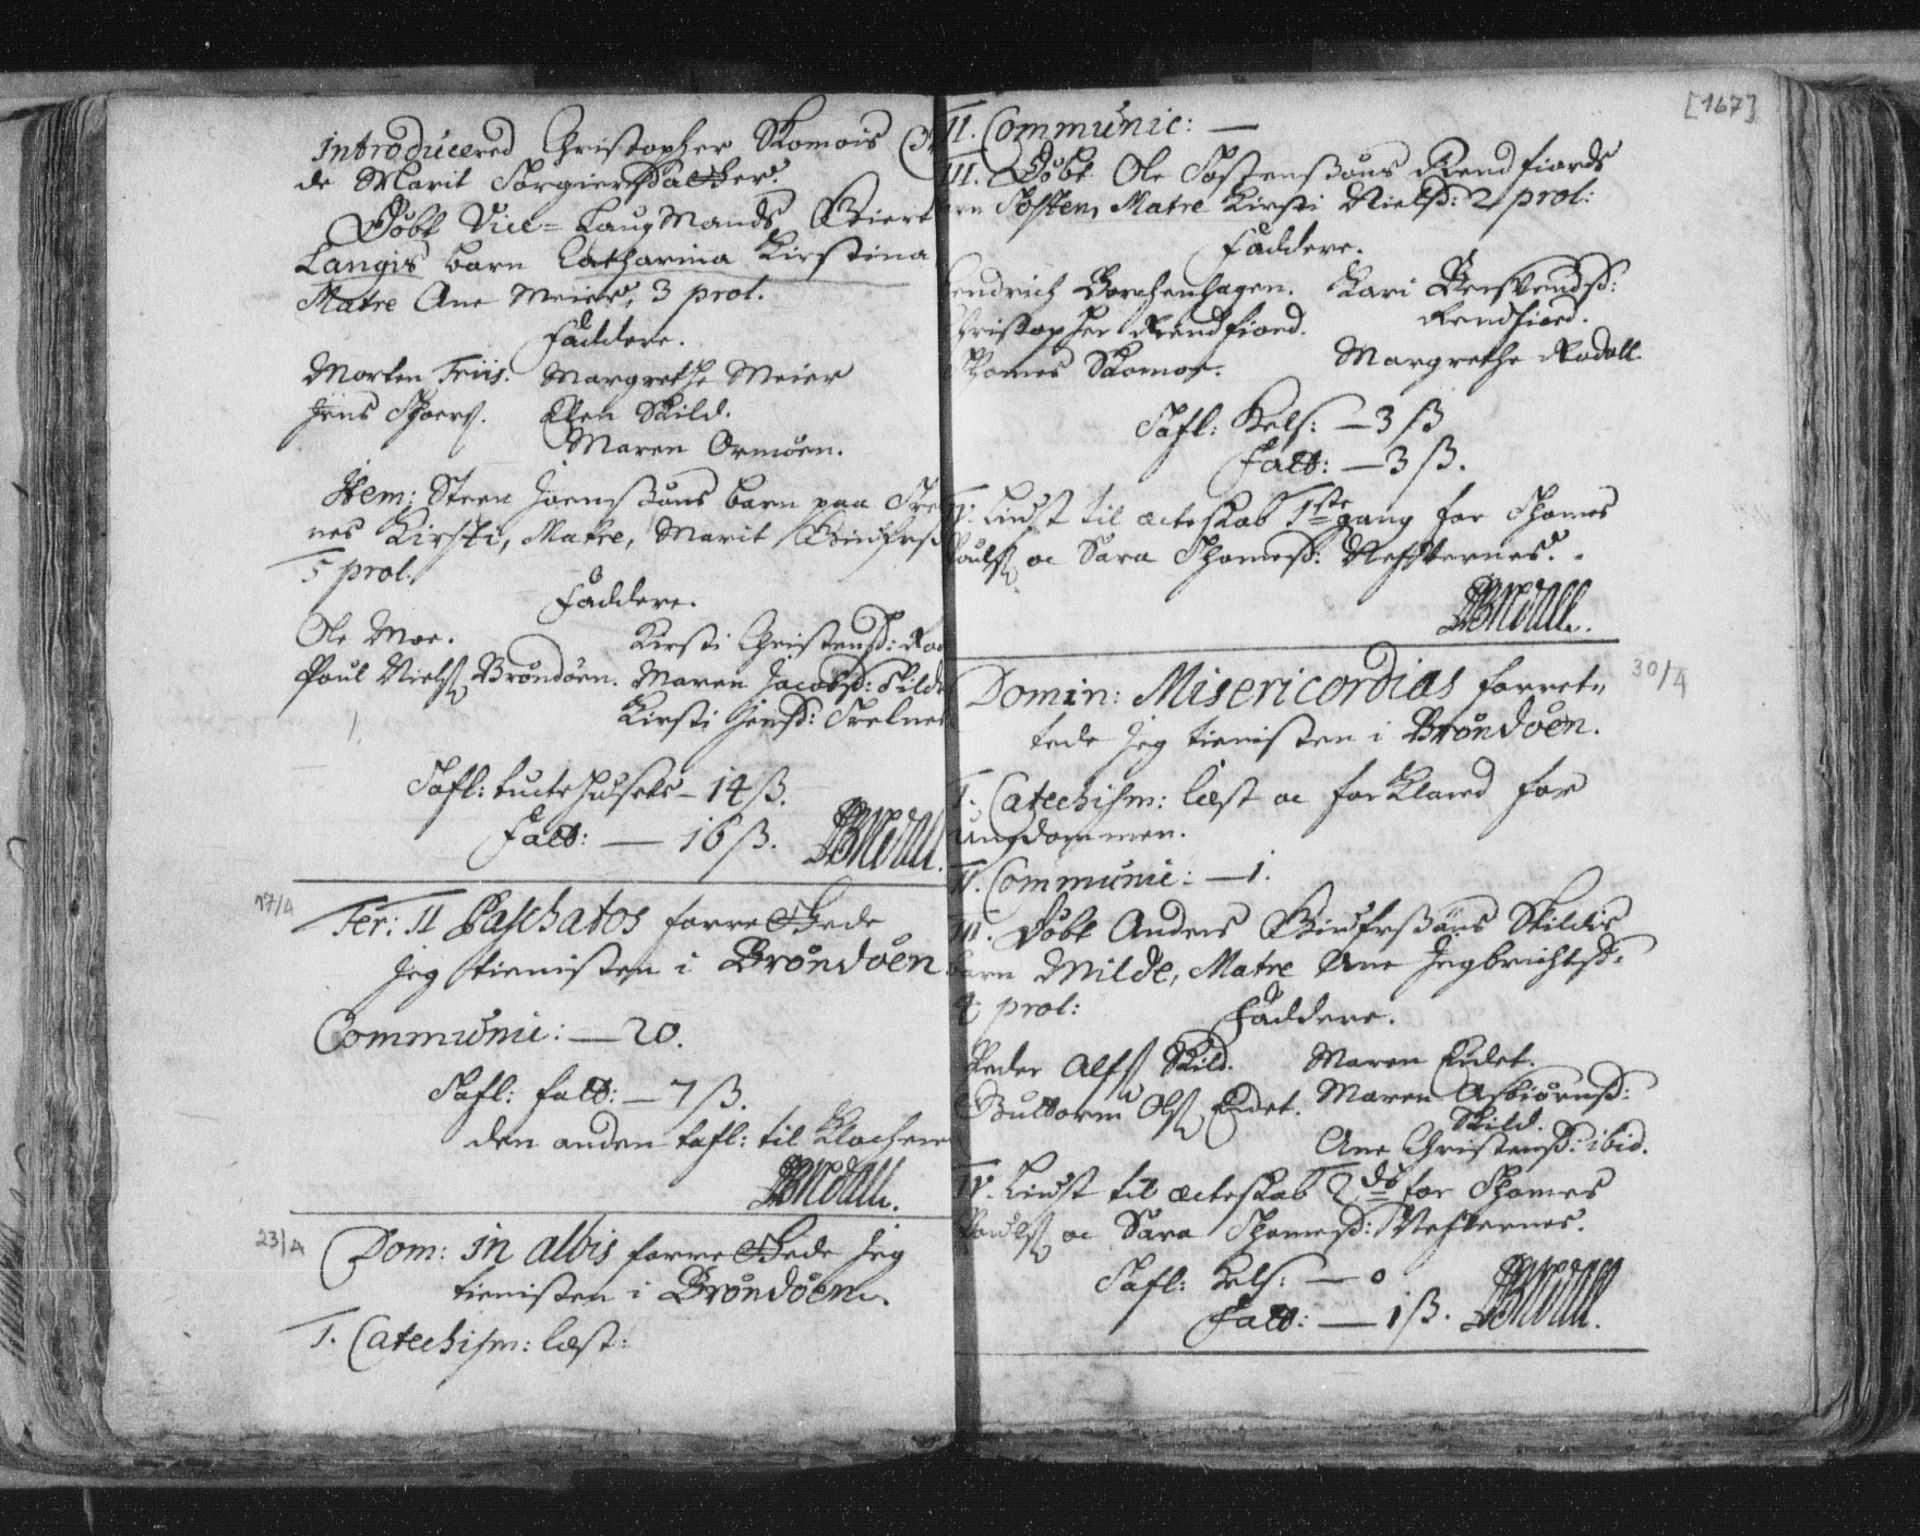 introducered Christopher Skomois
de Marit Torgiersdatter.
Döbt Vice-Laugmands Giert
Langis barn Catharina Kirstina
Matre Ane Meier, 3 prol.
Faddere.
Morten Friis. Margrethe Meier
Jens Skild.
Maren Ormöen.
Item: Steen Joenssöns barn paa
nes Kirsti, Matre, Marit
5 prol.
Faddere.
Ole Moe. Kirsti Christensd:
Poul Niels Bröndöen. Maren Jacobsd:
Kirsti Jensd:
Tafl: tuctehusets – 14 ß.
Fatt: — 16 ß.
17/4
Fer: II Paschatos forrettede
jeg tienisten i Bröndöen
Communic: — 20.
Tafl: fatt: — 7 ß.
den anden tafl: til Klochen
23/4
Dom: in albis forrettede jeg
tienisten i Bröndöen.
I. Catechism: læst:
[167]
II. Communic: —
III. Döbt Ole Tostenssöns Rendfiords
barn Tosten, Matre Kirsti Nielsd: 2 prol:
Faddere.
Hendrich Borchenhagen. Kari
Christopher Rendfiord. Rendfiord.
Thomes Skomoe. Margrethe Rodall.
Tafl: Kels: — 3 ß
Fatt: — 3 ß.
IV. Liust til ecteskab 1ste gang for Thomes
Pouls oc Sara Thomesd:
30/4
Domin: Misericordias forret-
tede jeg tienisten i Bröndöen.
I. Catechism: læst oc forklared for
ungdommen.
II. Communic: — 1.
III. Döbt Anders Skildis
barn Milde, Matre Ane
prol:
Faddere.
Peder Alfs Skild. Maren Eidet.
Guttorm Ols Eidet. Maren Asbiörnsd:
Skild.
Ane Christensd: ibid.
IV. Liust til ecteskab 2do for Thomes
Pouls oc Sara Thomesd:
Tafl: Kels: — 0
Fatt: — 1 ß.